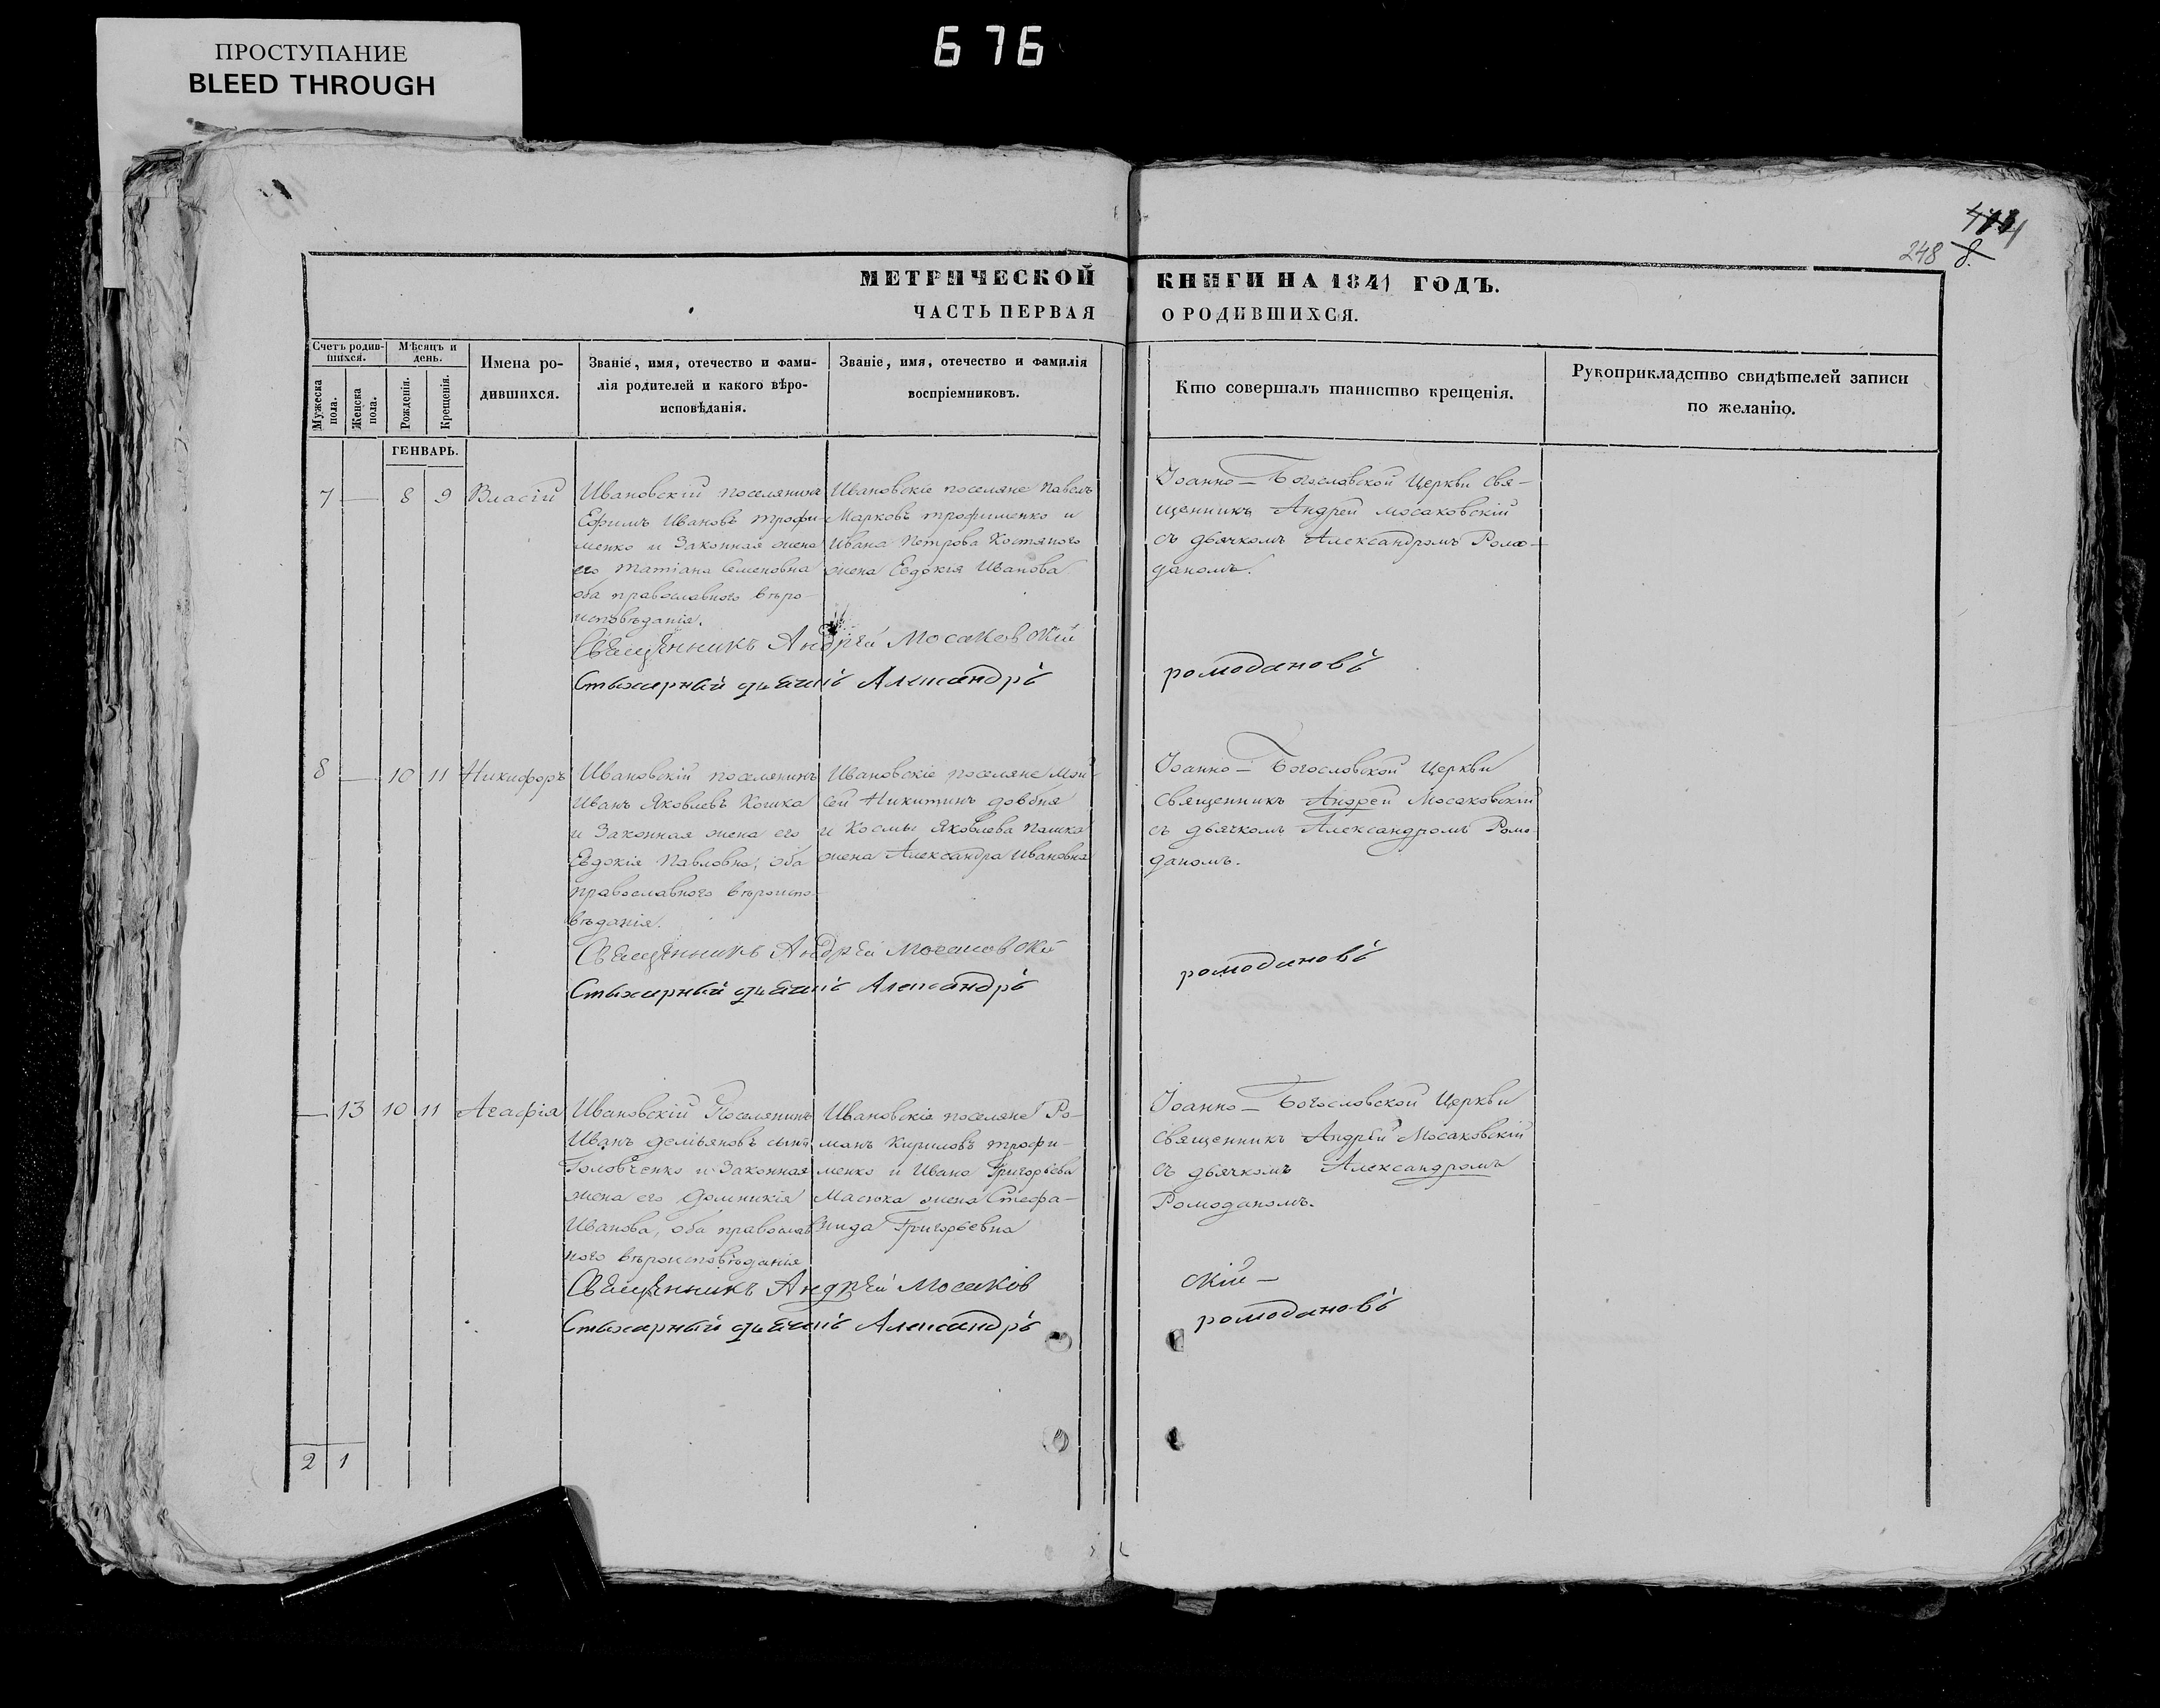 ПРОСТУПАНИЕ
BLEED THROUGH
676
248 8.
МЕТРИЧЕСКОЙ КНИГИ НА 1841 ГОДЪ.
ЧАСТЬ ПЕРВАЯ О РОДИВШИХСЯ.
Счетъ родив-
шихся.
Мужеска пола.
Женска пола.
Мѣсяцъ и день.
Рожденія.
Крещенія.
Имена ро-
дившихся.
Званіе, имя, отечество и фами-
лія родителей и какого вѣро-
исповѣданія.
Званіе, имя, отечество и фамилія
воспріемниковъ.
Кто совершалъ таинство крещенія.
Рукоприкладство свидѣтелей записи
по желанію.
ГЕНВАРЬ.
7 — 8 9 Власій
Ивановскій поселянинъ
Ефимъ Ивановъ Трофи-
менко и Законная жена
его Татіана Семеновна
оба православного вѣро-
исповѣданія.
Ивановскіе поселяне Павелъ
Марковъ Трофименко и
Ивана Петрова Костяного
жена Евдокія Иванова
Іоанно-Богословской Церкви Свя-
щенникъ Андрей Мосаковскій
съ дьячкомъ Александромъ Ромо-
даномъ.
Священникъ Андрей Мосаковскій
Стихарный дьячикъ Александръ ромодановъ
8 — 10 11 Никифоръ
Ивановскій поселянинъ
Иванъ Яковлевъ Кошка
и Законная жена его
Евдокія Павловна; оба
православного вѣроиспо-
вѣданія.
Ивановскіе поселяне Мои-
сей Никитинъ довбня
и Космы Яковлева Пашка
жена Александра Ивановна
Іоанно-Богословской Церкви
Священникъ Андрей Мосаковскій
съ дьячкомъ Александромъ Ромо
даномъ.
Священникъ Андрей Мосаковскій
Стихарный дьячикъ Александръ ромодановъ
— 13 10 11 Агафія
Ивановскій Поселянинъ
Иванъ Демьяновъ сынъ
Головченко и Законная
жена его Домникія
Иванова, оба православ
ного вѣроисповѣданія
Ивановскіе поселяне Ро-
манъ Кириловъ Трофи-
менко и Ивана Григорьева
Масюка жена Стефа-
нида Григорьевна
Іоанно-Богословской Церкви
Священникъ Андрей Мосаковскій
съ дьячкомъ Александромъ
Ромоданомъ.
Священникъ Андрей Мосаков скій —
Стихарный дьячикъ Александръ ромодановъ
2 1